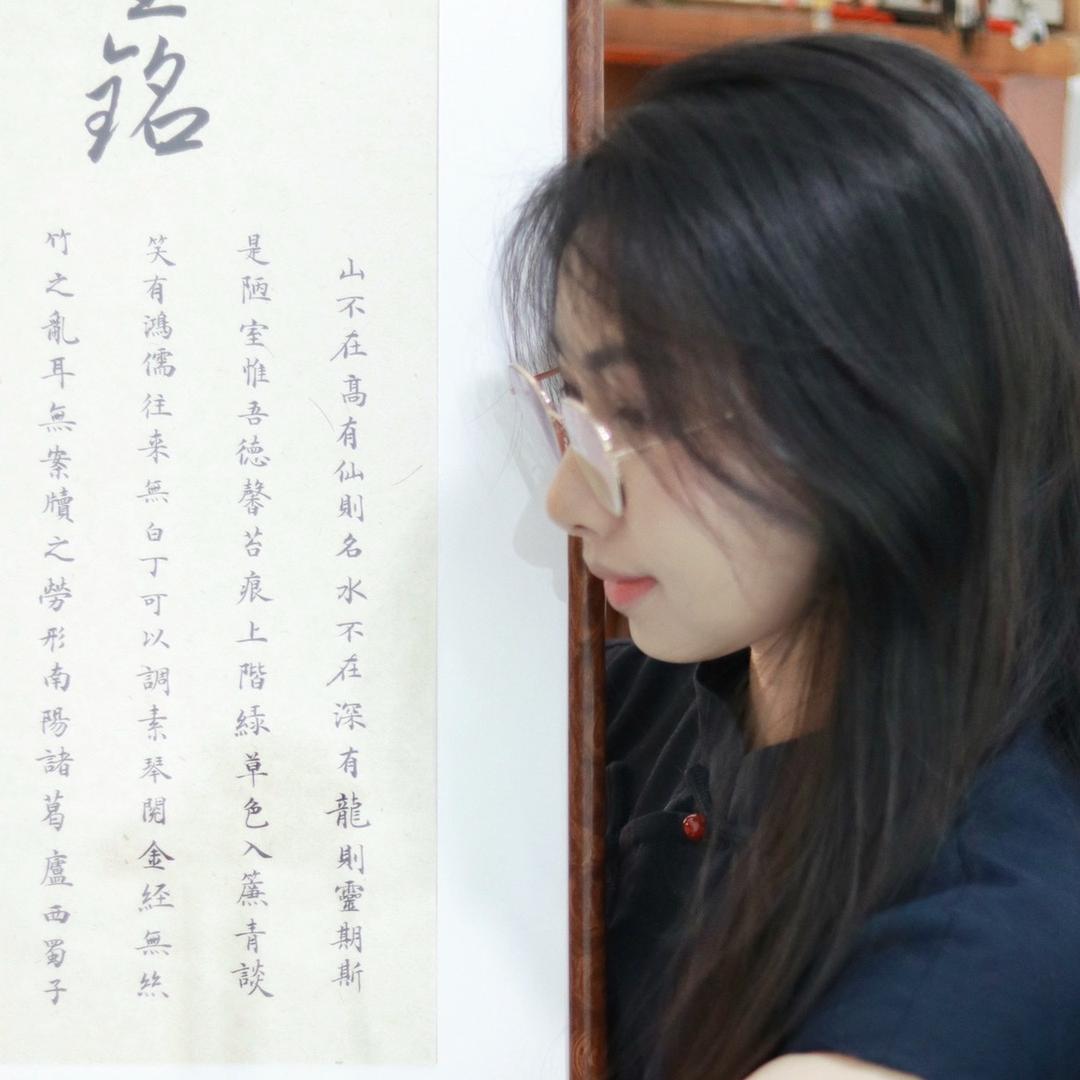 銘
山不在高有仙則名水不在深有龍則靈期斯
是陋室惟吾德馨苔痕上階緑草色入簾青談
笑有鴻儒往来無白丁可以調素琴閲金経無絲
竹之亂耳無案牘之勞形南陽諸葛廬西蜀子